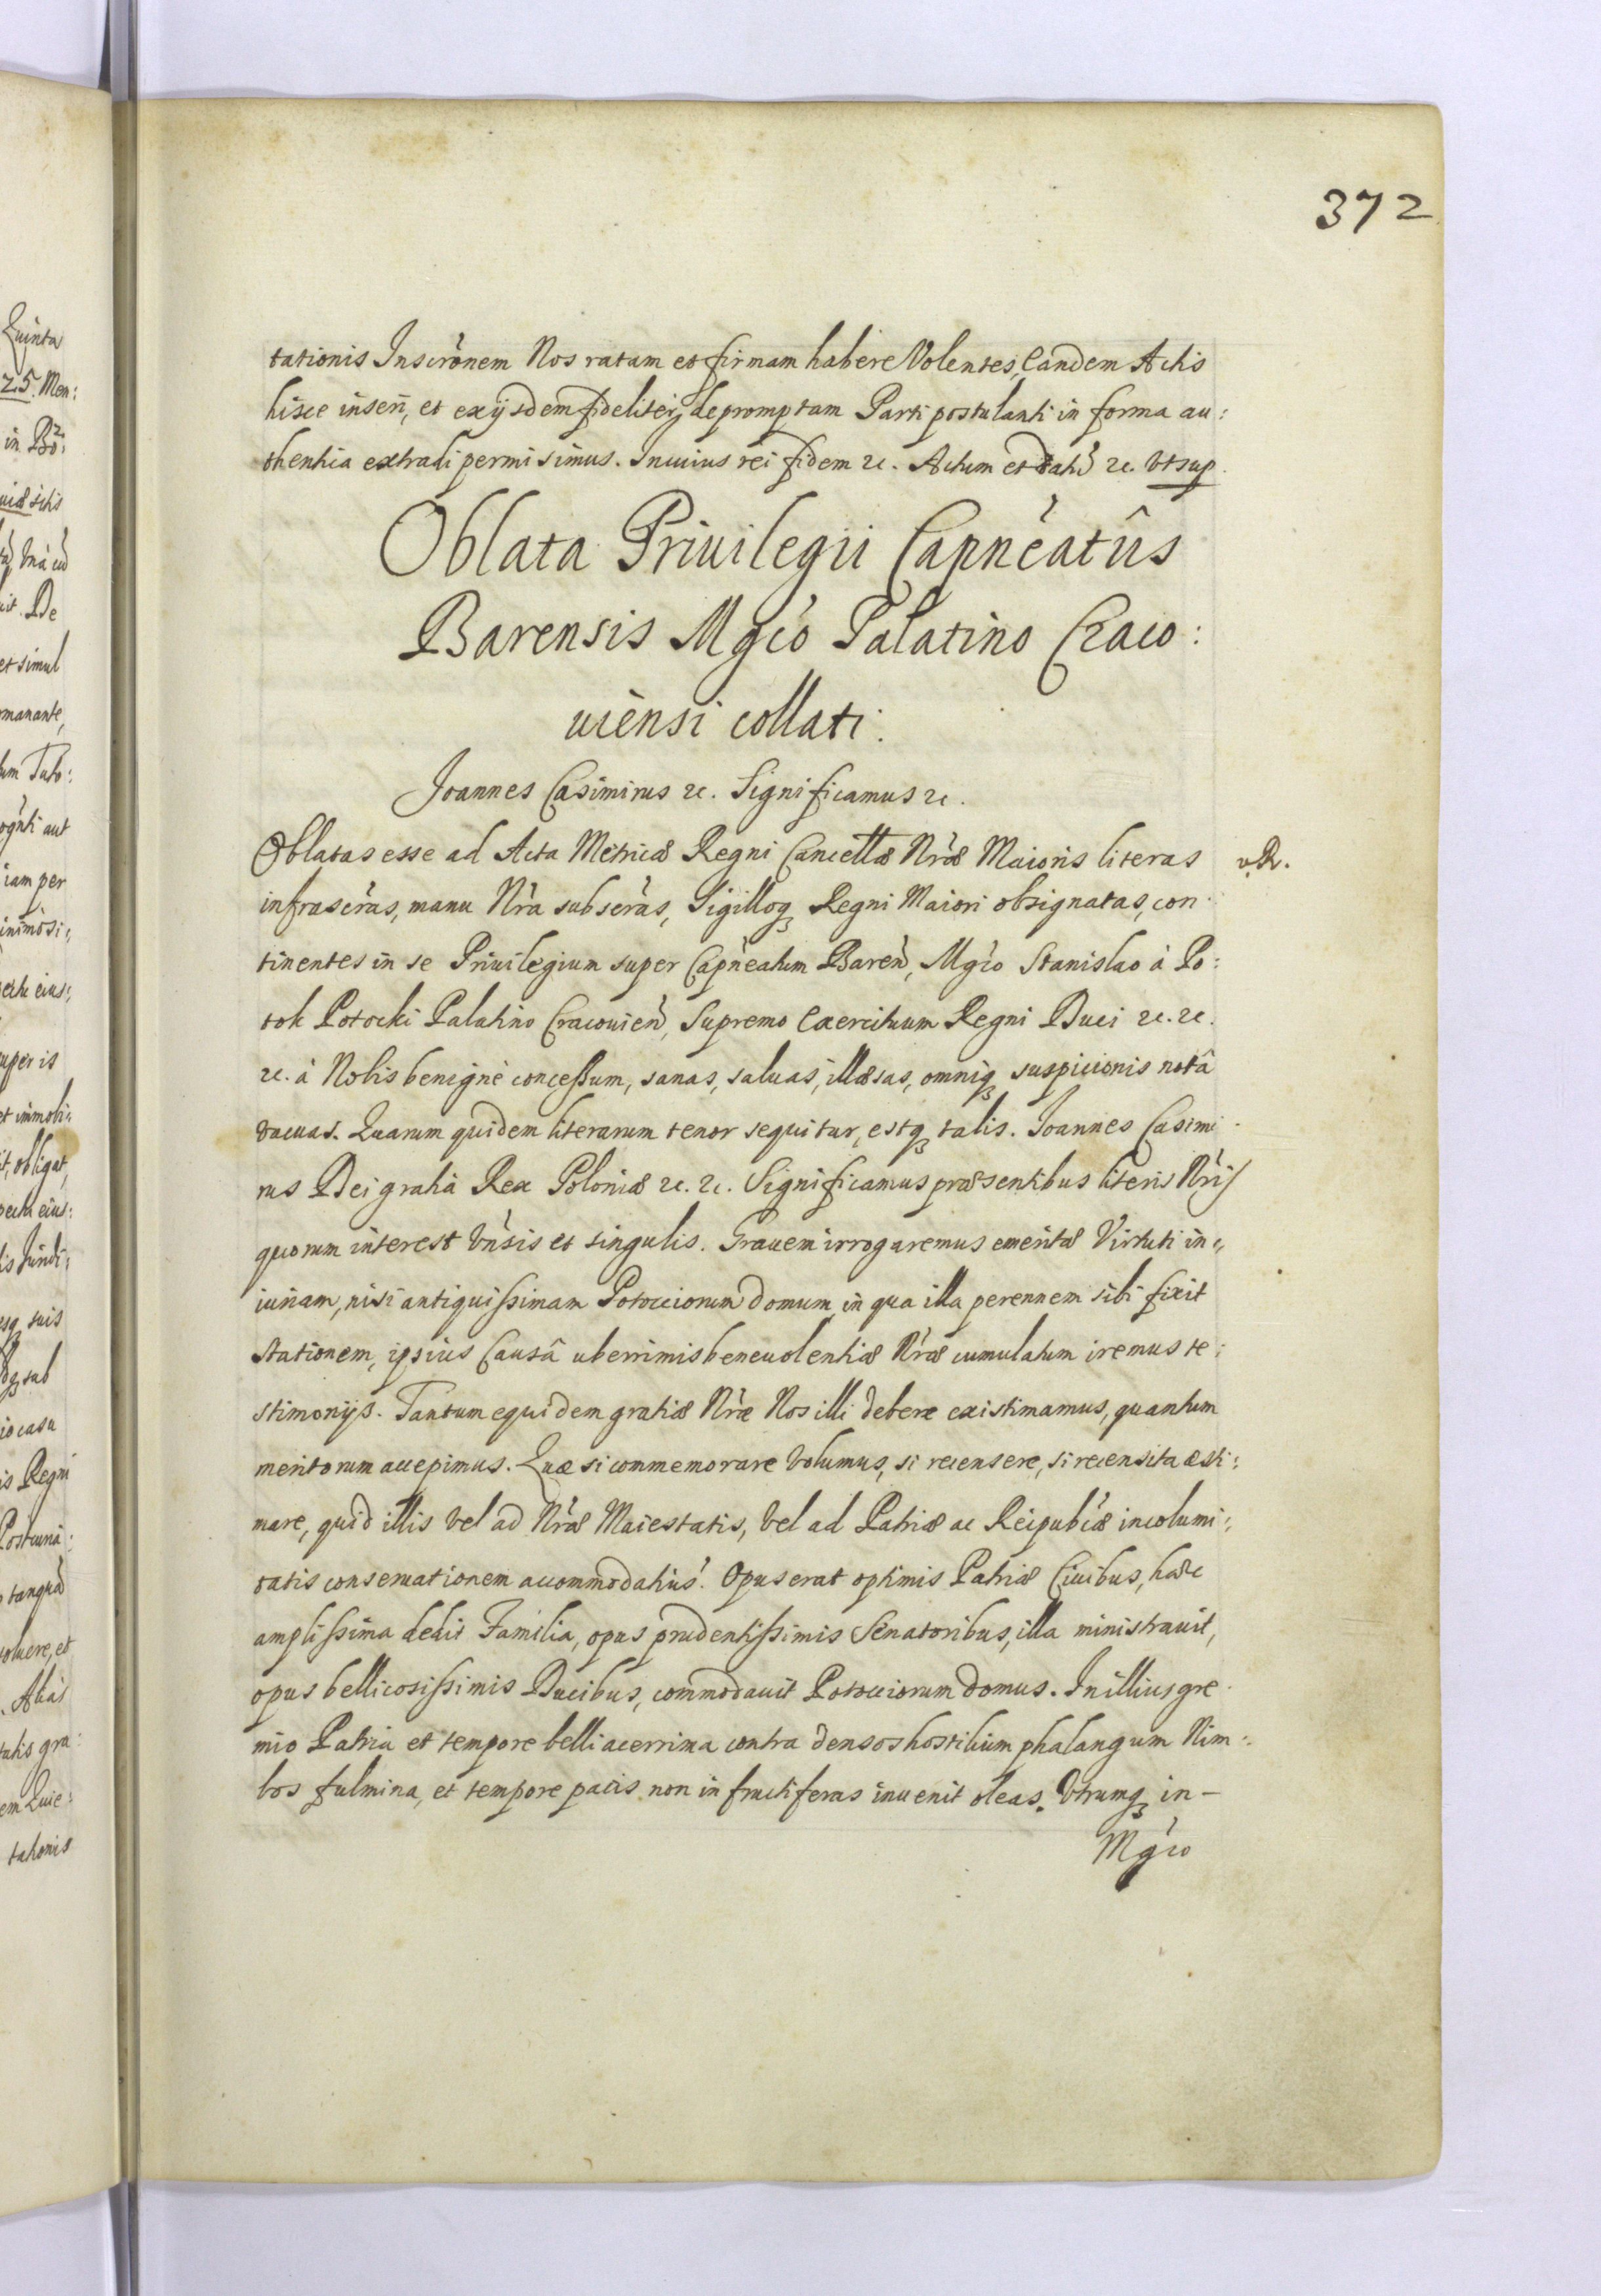 372
tationis Inscrònem Nos ratam et firmam habere Volentes, Eandem Actis
hisce inseri, et exijsdem fideliter depromptam Parti postulanti in forma au:
thentica extradi permisimus. Incuius rei fidem &c. Actum et datũ &c. Vtsup.
Oblata Priuilegii Capnèatûs
Barensis Mgcò Palatino Craco:
uiènsi collati.
Joannes Casimirus &c. Significamus &c.
Oblatas esse ad Acta Metricæ Regni Cancellæ Nræ Maioris literas
v. R.
infrascr̀as, manu Nrà subscr̀as, Sigilloq Regni Maiori obsignatas, con:
tinentes in se Priuilegium super Capǹeatum Baren̄, Mgc̀o Stanislao à Po:
tok Potocki Palatino Cracouien̄, Supremo Exercituum Regni Duci &c. &c.
&c. à Nobis benignè concessum, sanas, saluas, illæsas, omniq suspicionis notâ
vacuas. Quarum quidem literarum tenor sequitur, estq talis. Joannes Casimi:
rus Dei gratià Rex Poloniæ &c. &c. Significamus præsentibus literis Nr̀is
quorum interest Vǹsis et singulis. Grauem irrogaremus emeritæ Virtuti in:
iuriam, nisi antiquissimam Potocciorum domum, in qua illa perennem sibi fixit
stationem, ipsius Causâ uberrimis beneuolentiæ Nr̀æ cumulatum iremus te:
stimonijs. Tantum equidem gratiæ Nr̀æ Nos illi debere existimamus, quantum
meritorum accepimus. Quæ si commemorare Volumus, si recensere, si recensita æsti:
mare, quid illis vel ad Nr̀æ Maiestatis, vel ad Patriæ ac Reipubc̀æ incolumi:
tatis conseruationem accommodatius? Opus erat optimis Patriæ Ciuibus, hæc
amplissima dedit Familia, opus prudentissimis Senatoribus, illa ministrauit,
opus bellicosissimis Ducibus, commodauit Potocciorum domus. In illius gre:
mio Patria et tempore belli acerrima contra densos hostilium phalangum Nim:
bos fulmina, et tempore pacis non infructiferas inuenit oleas. Vtrumq in-
Mgc̀o